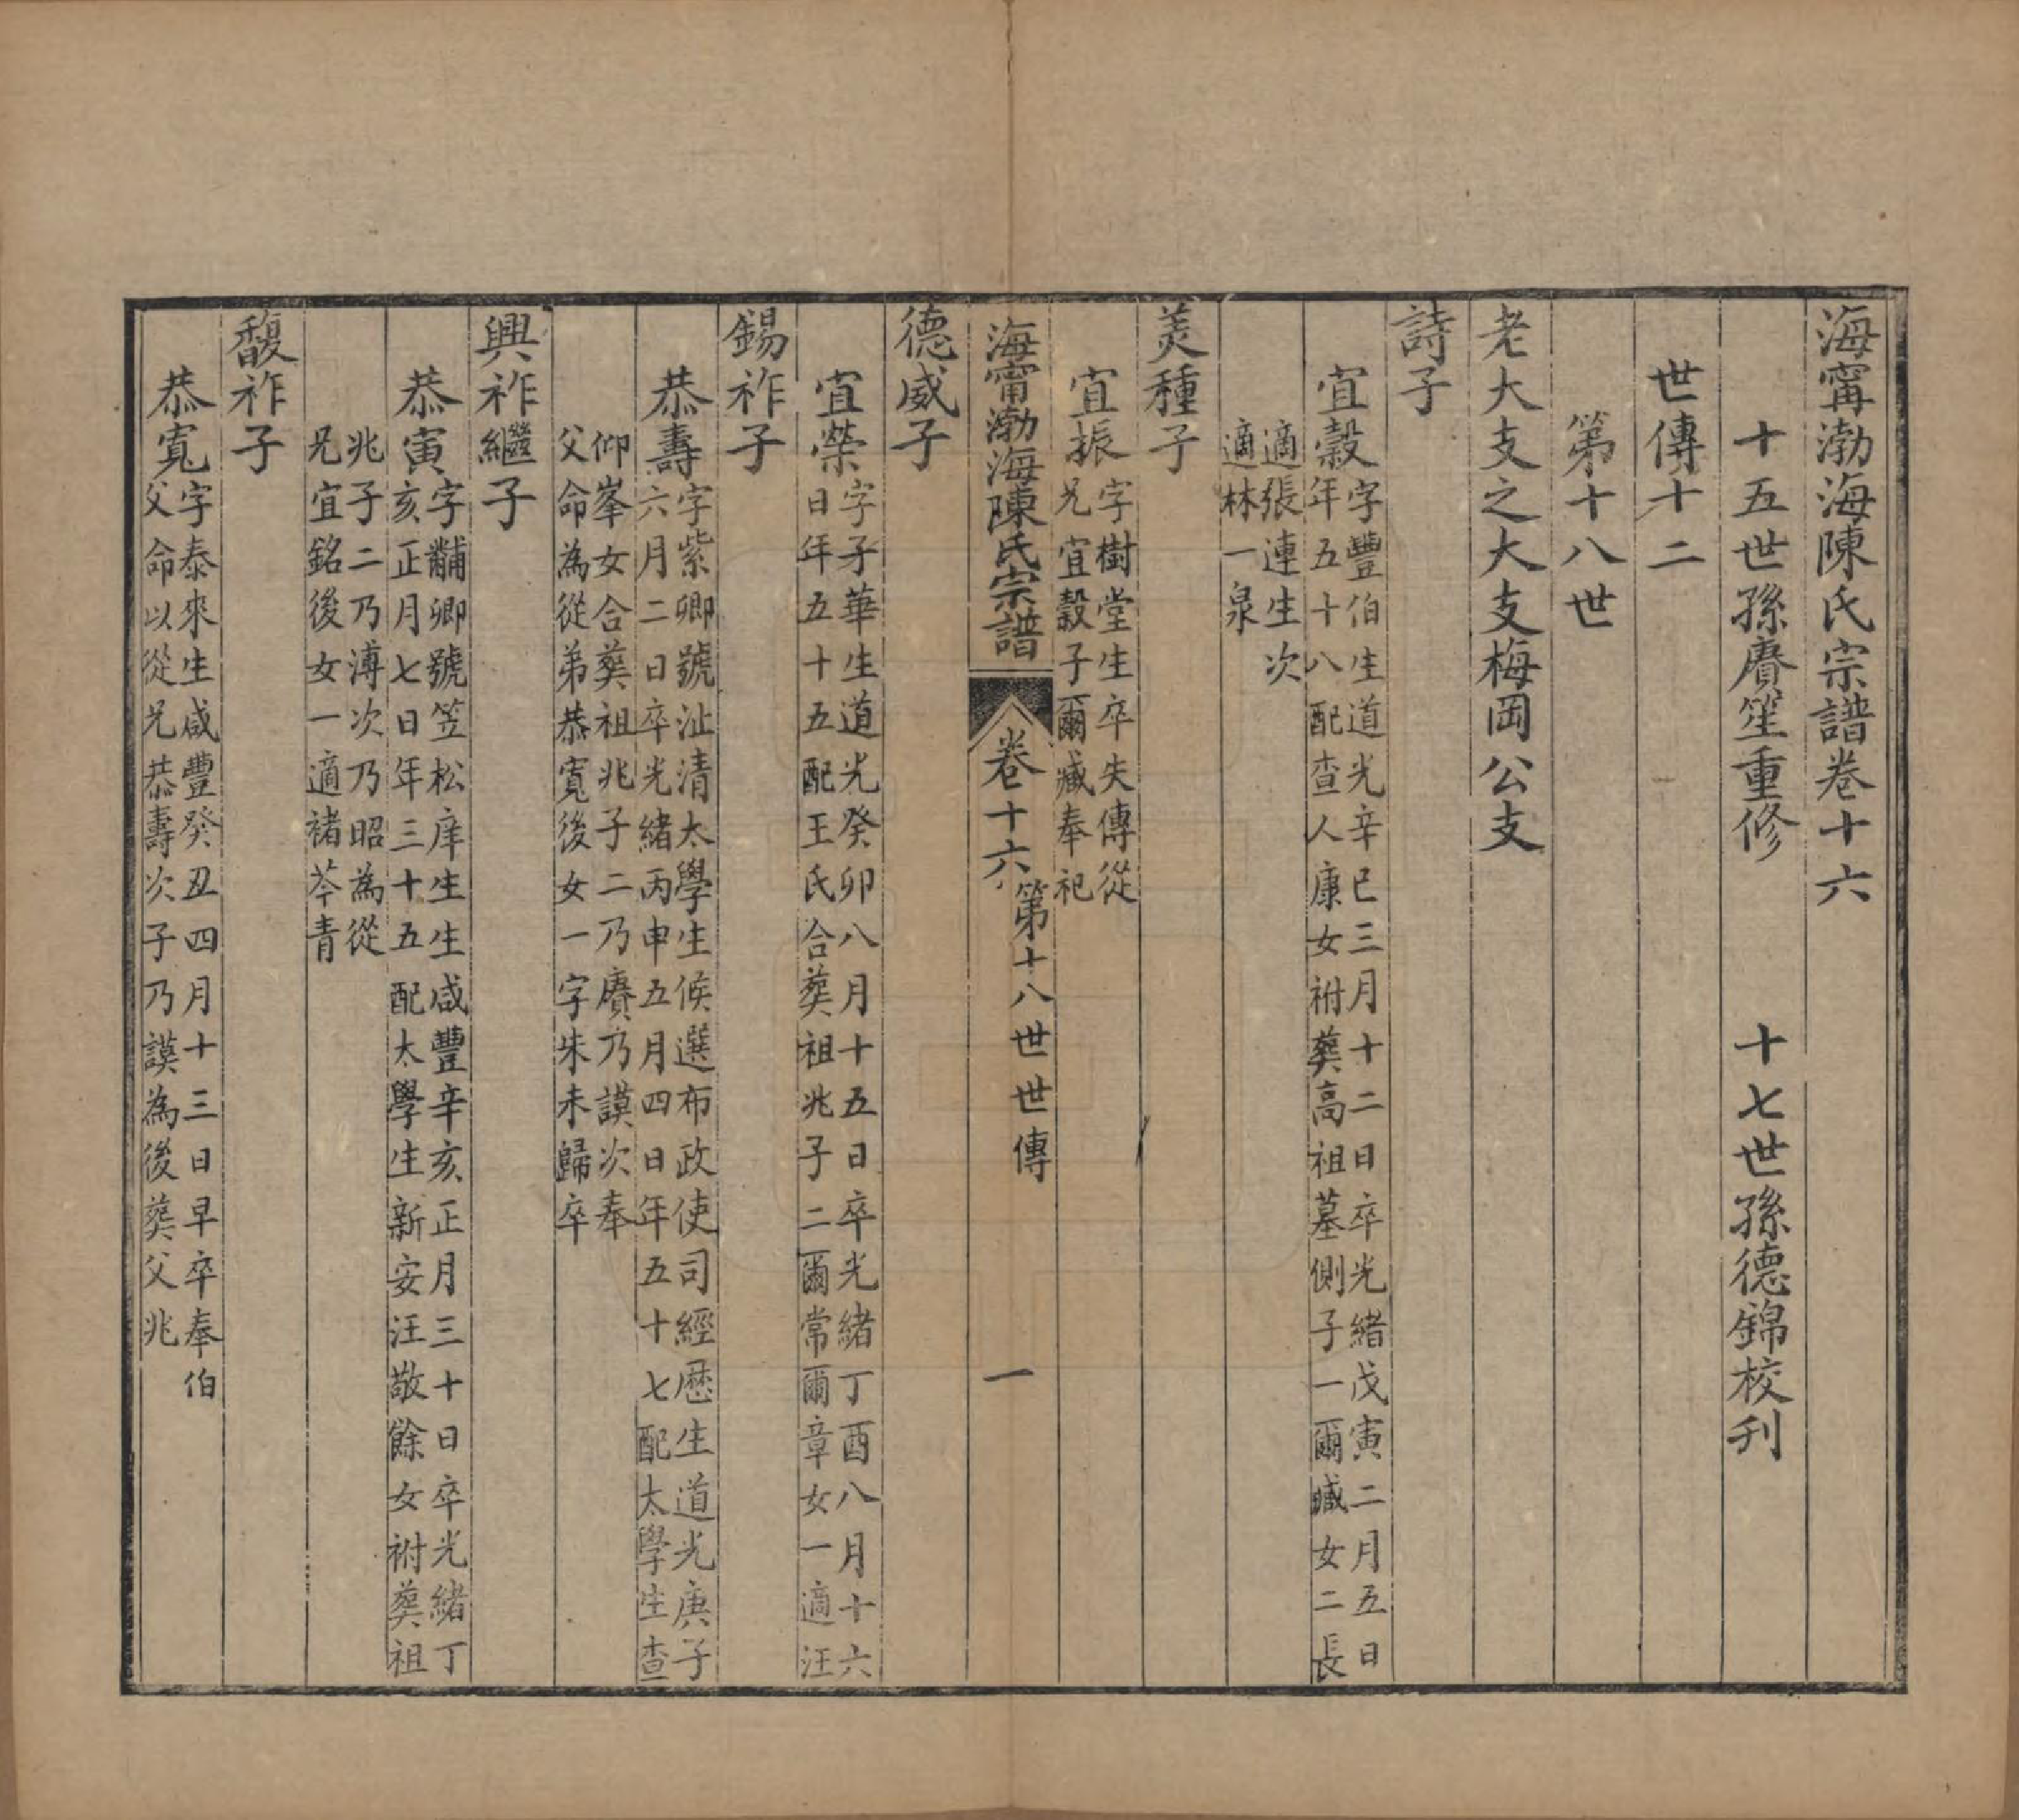 海甯渤海陳氏宗譜卷十六
十五世孫賡笙重修　十七世孫德錦校刋
世傳十二
第十八世
老大支之大支梅岡公支
詩子
宜穀字豐伯生道光辛巳三月十二日卒光緒戊寅二月五日
年五十八配查人康女祔葬高祖墓側子一爾臧女二長
適張連生次
適林一泉
羙種子
宜振字樹堂生卒失傳從
兄宜穀子爾臧奉祀
海甯渤海陳氏宗譜　卷十六　第十八世世傳　一
德威子
宜榮字子華生道光癸卯八月十五日卒光緒丁酉八月十六
日年五十五配王氏合葬祖兆子二爾常爾章女一適汪
錫祚子
恭壽字紫卿號沚清太學生候選布政使司經歷生道光庚子
六月二日卒光緒丙申五月四日年五十七配太學生查
仰峯女合葬祖兆子二乃賡乃謨次奉
父命為從弟恭寬後女一字朱未歸卒
興祚繼子
恭寅字黼卿號笠松庠生生咸豐辛亥正月三十日卒光緒丁
亥正月七日年三十五配太學生新安汪敬餘女祔葬祖
兆子二乃溥次乃昭為從
兄宜銘後女一適褚芩青
馥祚子
恭寬字泰來生咸豐癸丑四月十三日早卒奉伯
父命以從兄恭壽次子乃謨為後葬父兆